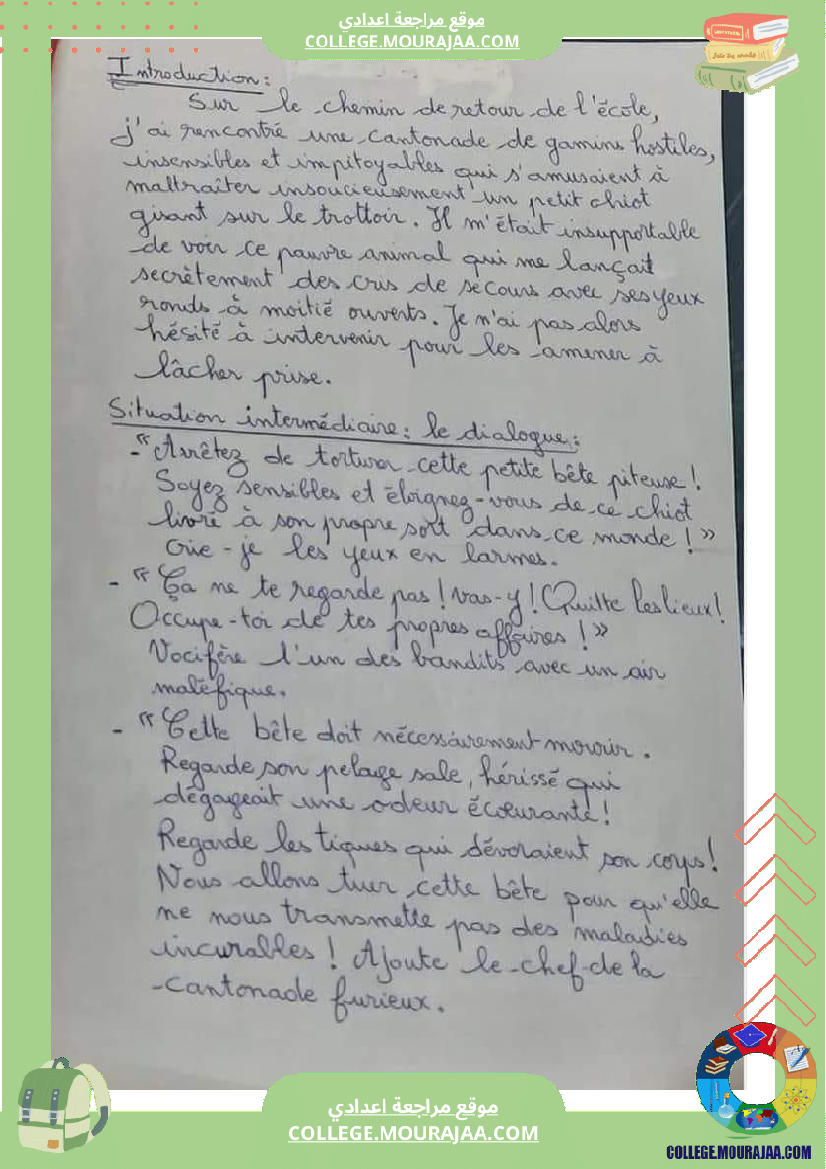 موقع مراجعة اعدادي
COLLEGE.MOURAJAA.COM
Introduction:
Sur le chemin de retour de l'école,
j'ai rencontré une cantonade de gamins hostiles,
insensibles et impitoyables qui s'amusaient à
maltraîter insoucieusement un petit chiot
gisant sur le trottoir. Il m'était insupportable
de voir ce pauvre animal qui me lançait
secrètement des cris de secours avec ses yeux
ronds à moitié ouverts. Je n'ai pas alors
hésité à intervenir pour les amener à
lâcher prise.
Situation intermédiaire: le dialogue:
- "Arrêtez de torturer cette petite bête piteuse!
Soyez sensibles et éloignez-vous de ce chiot
livré à son propre sort dans ce monde!»
Crie-je les yeux en larmes.
- "Ça ne te regarde pas! Vas-y! Quitte les lieux!
Occupe-toi de tes propres affaires!»
Vocifère l'un des bandits avec un air
maléfique.
- "Cette bête doit nécessairement mourir.
Regarde son pelage sale, hérissé qui
dégageait une odeur écœurante!
Regarde les tiques qui dévoraient son corps!
Nous allons tuer cette bête pour qu'elle
ne nous transmette pas des maladies
incurables! Ajoute le chef de la
cantonade furieux.
موقع مراجعة اعدادي
COLLEGE.MOURAJAA.COM
COLLEGE.MOURAJAA.COM